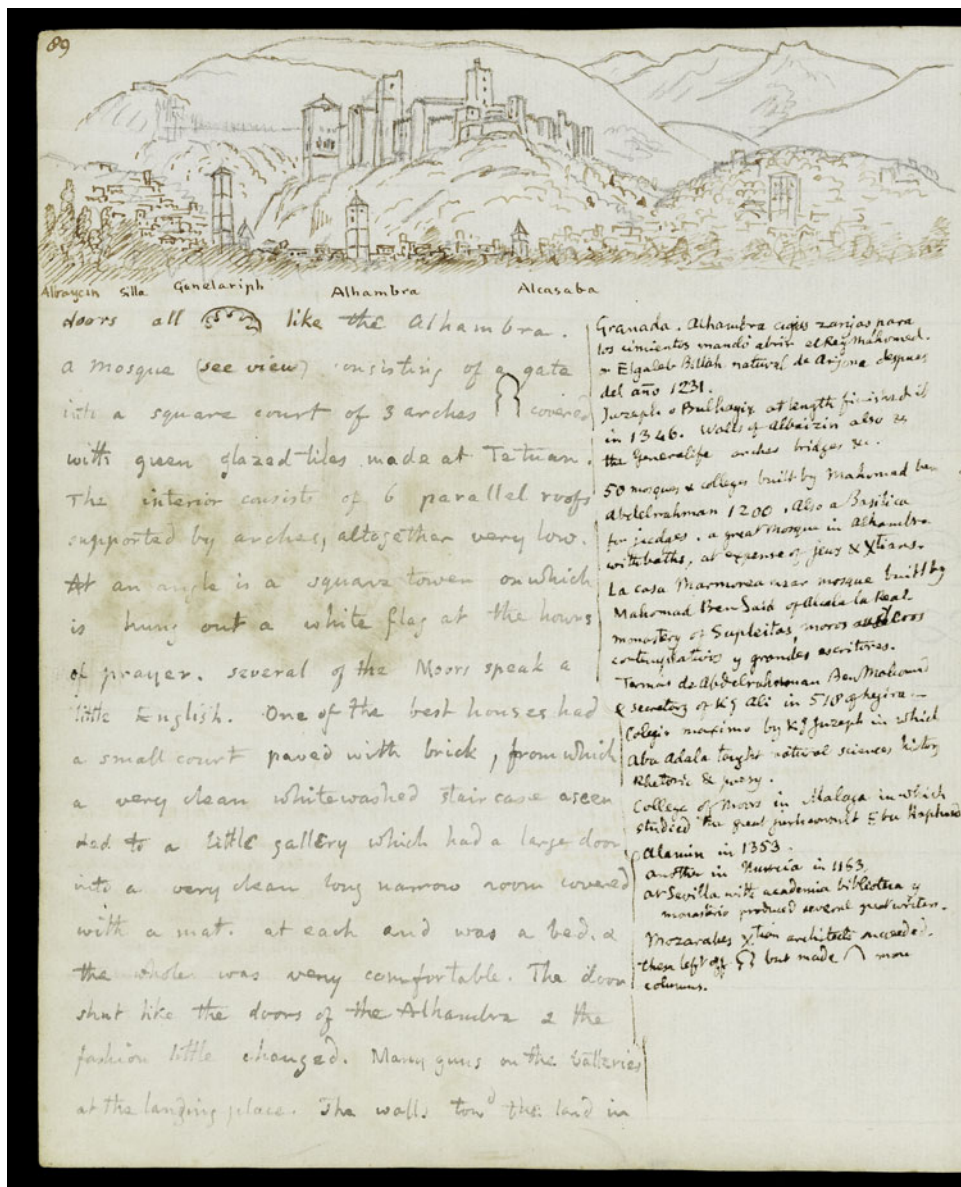 89
Albaycin Silla Genelariph Alhambra Alcasaba
doors all like the Alhambra.
a Mosque (see view) consisting of a gate
into a square court of 3 arches covered
with green glazed tiles made at Tetuan.
The interior consists of 6 parallel roofs
supported by arches, altogether very low.
At an angle is a square tower on which
is hung out a white flag at the hours
of prayer. several of the Moors speak a
little English. One of the best houses had
a small court paved with brick, from which
a very clean whitewashed staircase ascen
ded to a little gallery which had a large door
into a very clean long narrow room covered
with a mat. at each end was a bed. &
the whole was very comfortable. The door
shut like the doors of the Alhambra & the
fashion little changed. Many guns on the batteries
at the landing place. The walls towd the land in
Granada. Alhambra cujas zanjas para
los cimientos mandó abrir el Rey Mahomed.
o Elgaleb Billah natural de Arjona despues
del año 1231.
Juzeph o Bulhagix at length finished it
in 1346. Walls of Albaizin also &
the Generalife arches bridges &c.
50 mosques & colleges built by Mahomad ben
Abdelrahman 1200. Also a Basilica
for judges. a great Mosque in Alhambra
with baths, at expense of jews & Xtians.
La casa Marmorea near mosque built by
Mahomad Ben Said of Alcala la Real
monastery of moros
contemplativos y grandes escritores.
de Abdelrahman Ben
& secretary of Kg Ali in 518 of hegira.—
Colegio maximo by Kg Juzeph in which
Aba Adala taught natural sciences history
Rhetoric & poesy.
College of Moors in Malaga in which
studied the great Ebn
Alamin in 1353.
another in Murcia in 1183.
at Sevilla with academia biblioteca y
monasterio produced several great writers.
Mozarabes Xtian architects succeeded.
then left off but made more
columns.